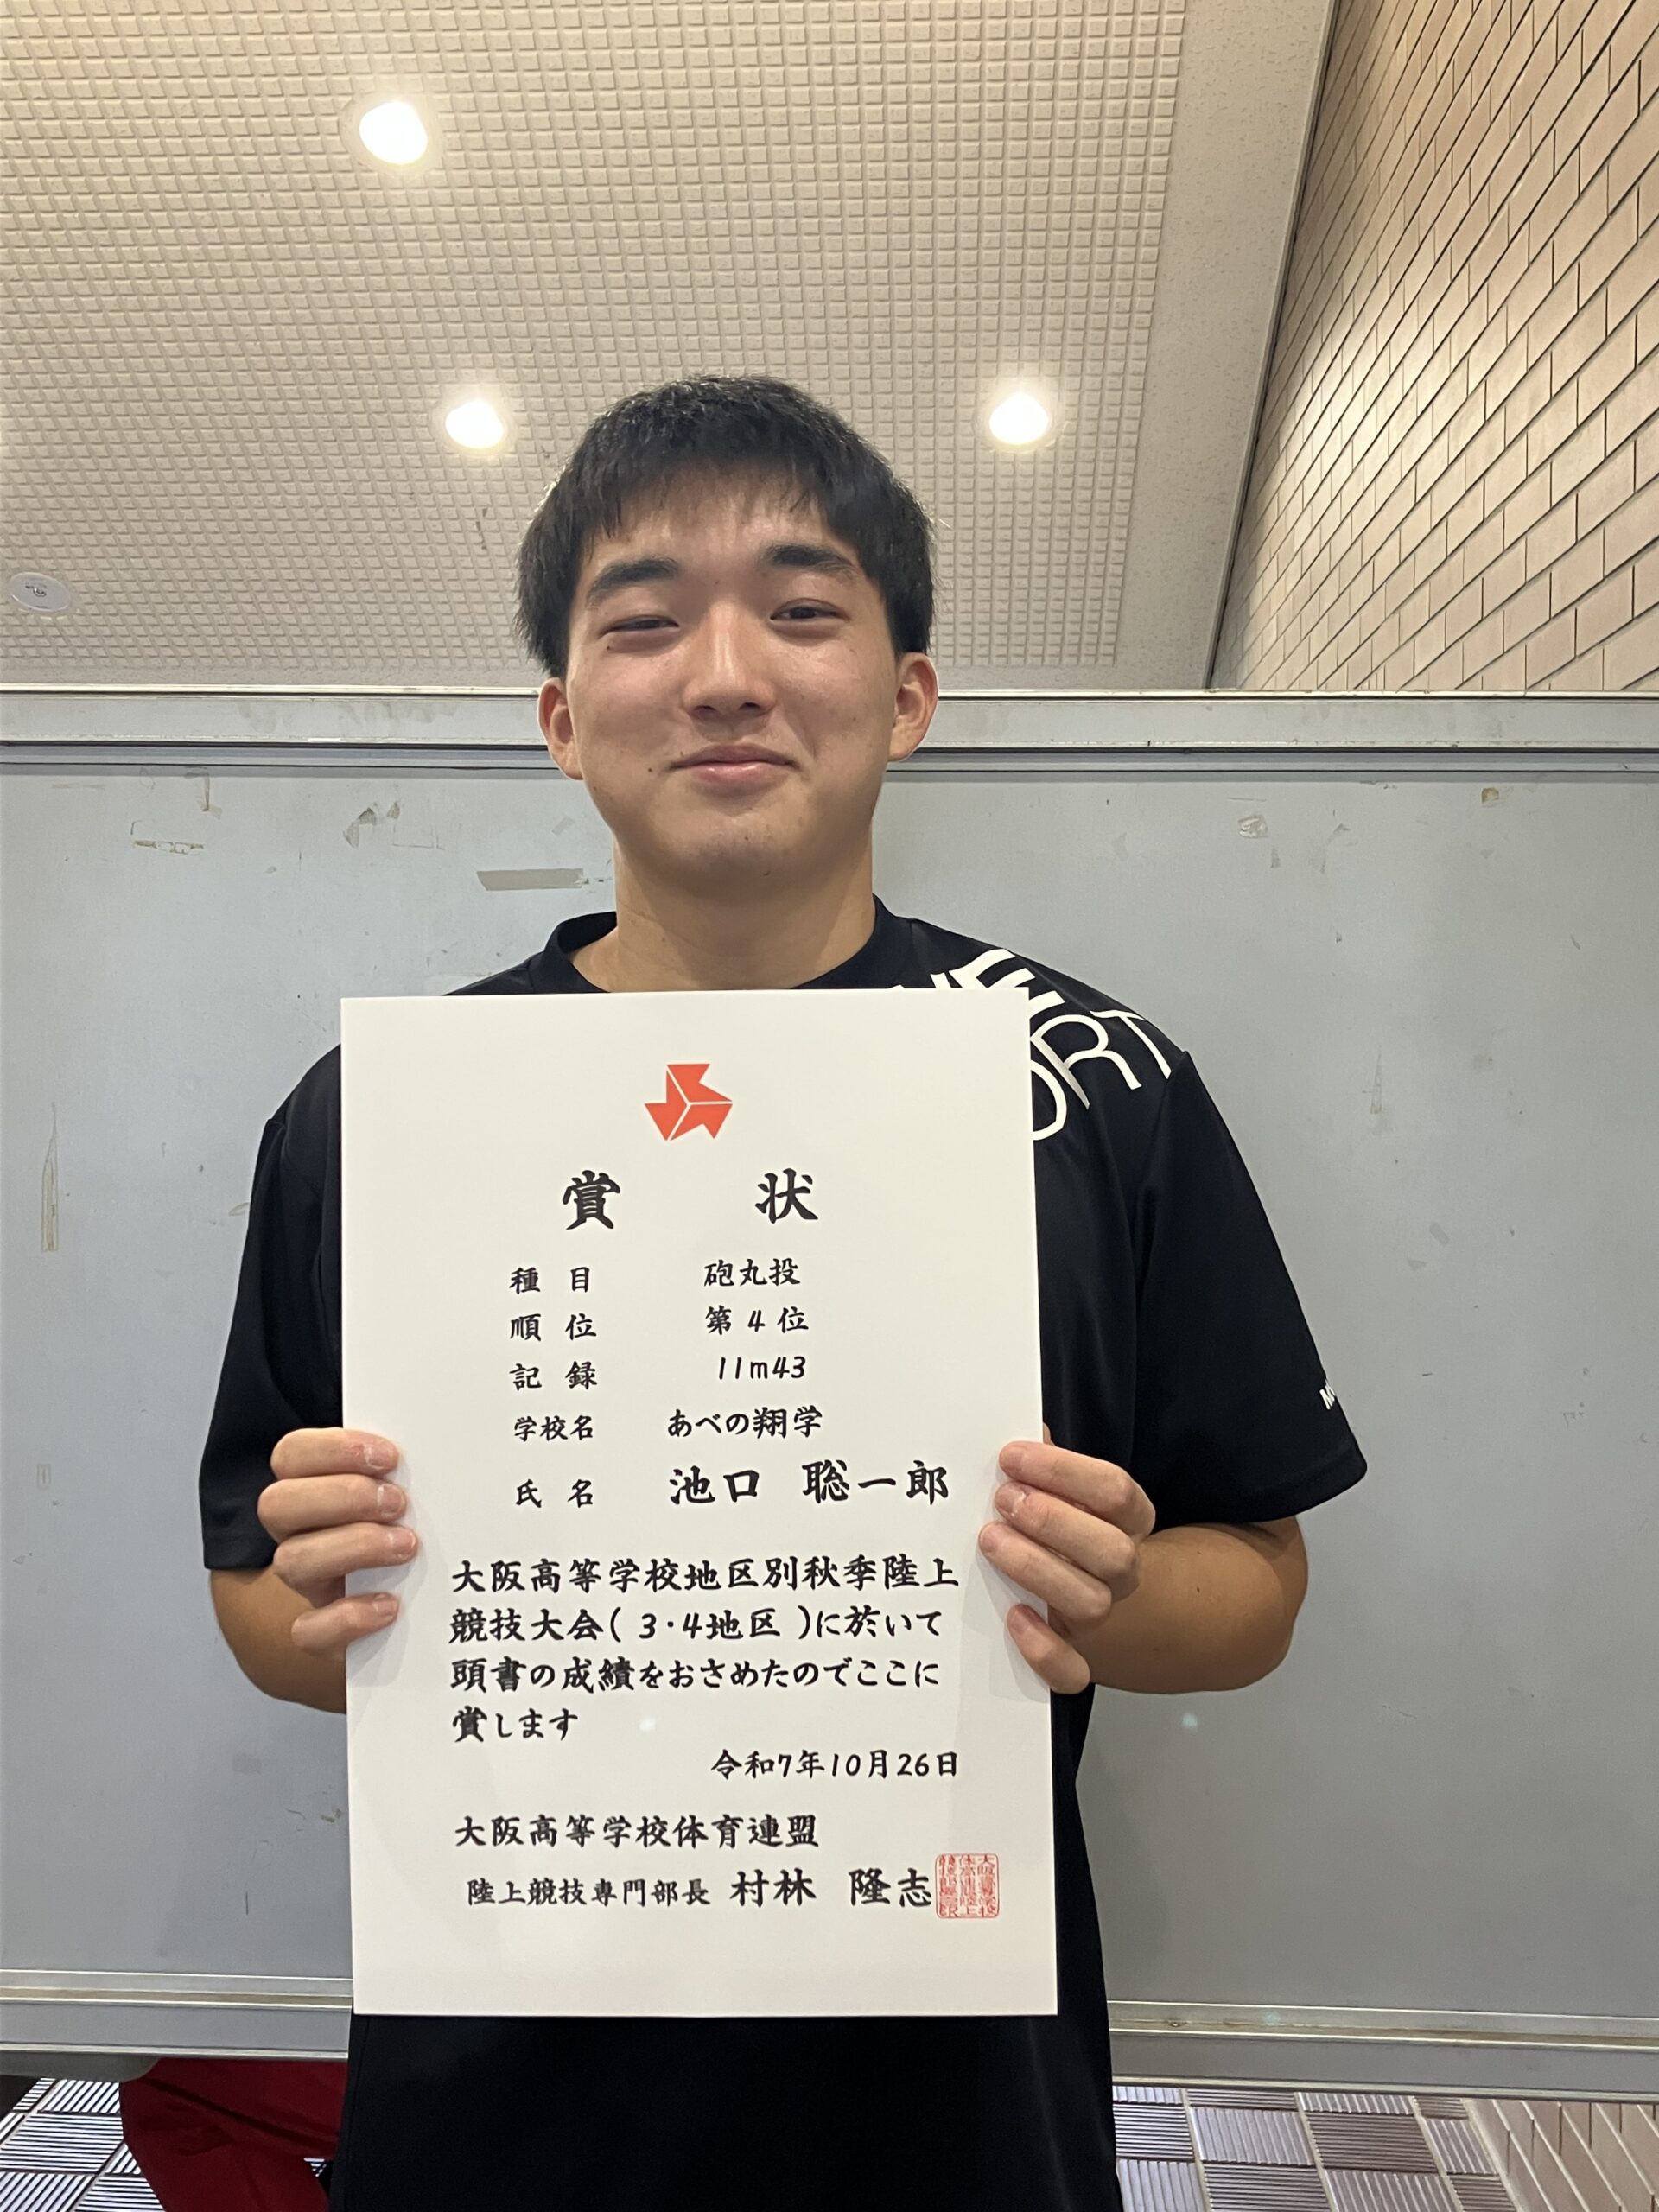 賞 状
種 目 砲丸投
順 位 第 4 位
記 録 11m43
学校名 あべの翔学
氏 名 池口 聡一郎
大阪高等学校地区別秋季陸上
競技大会( 3・4地区 )に於いて
頭書の成績をおさめたのでここに
賞します
令和7年10月26日
大阪高等学校体育連盟
陸上競技専門部長 村林 隆志